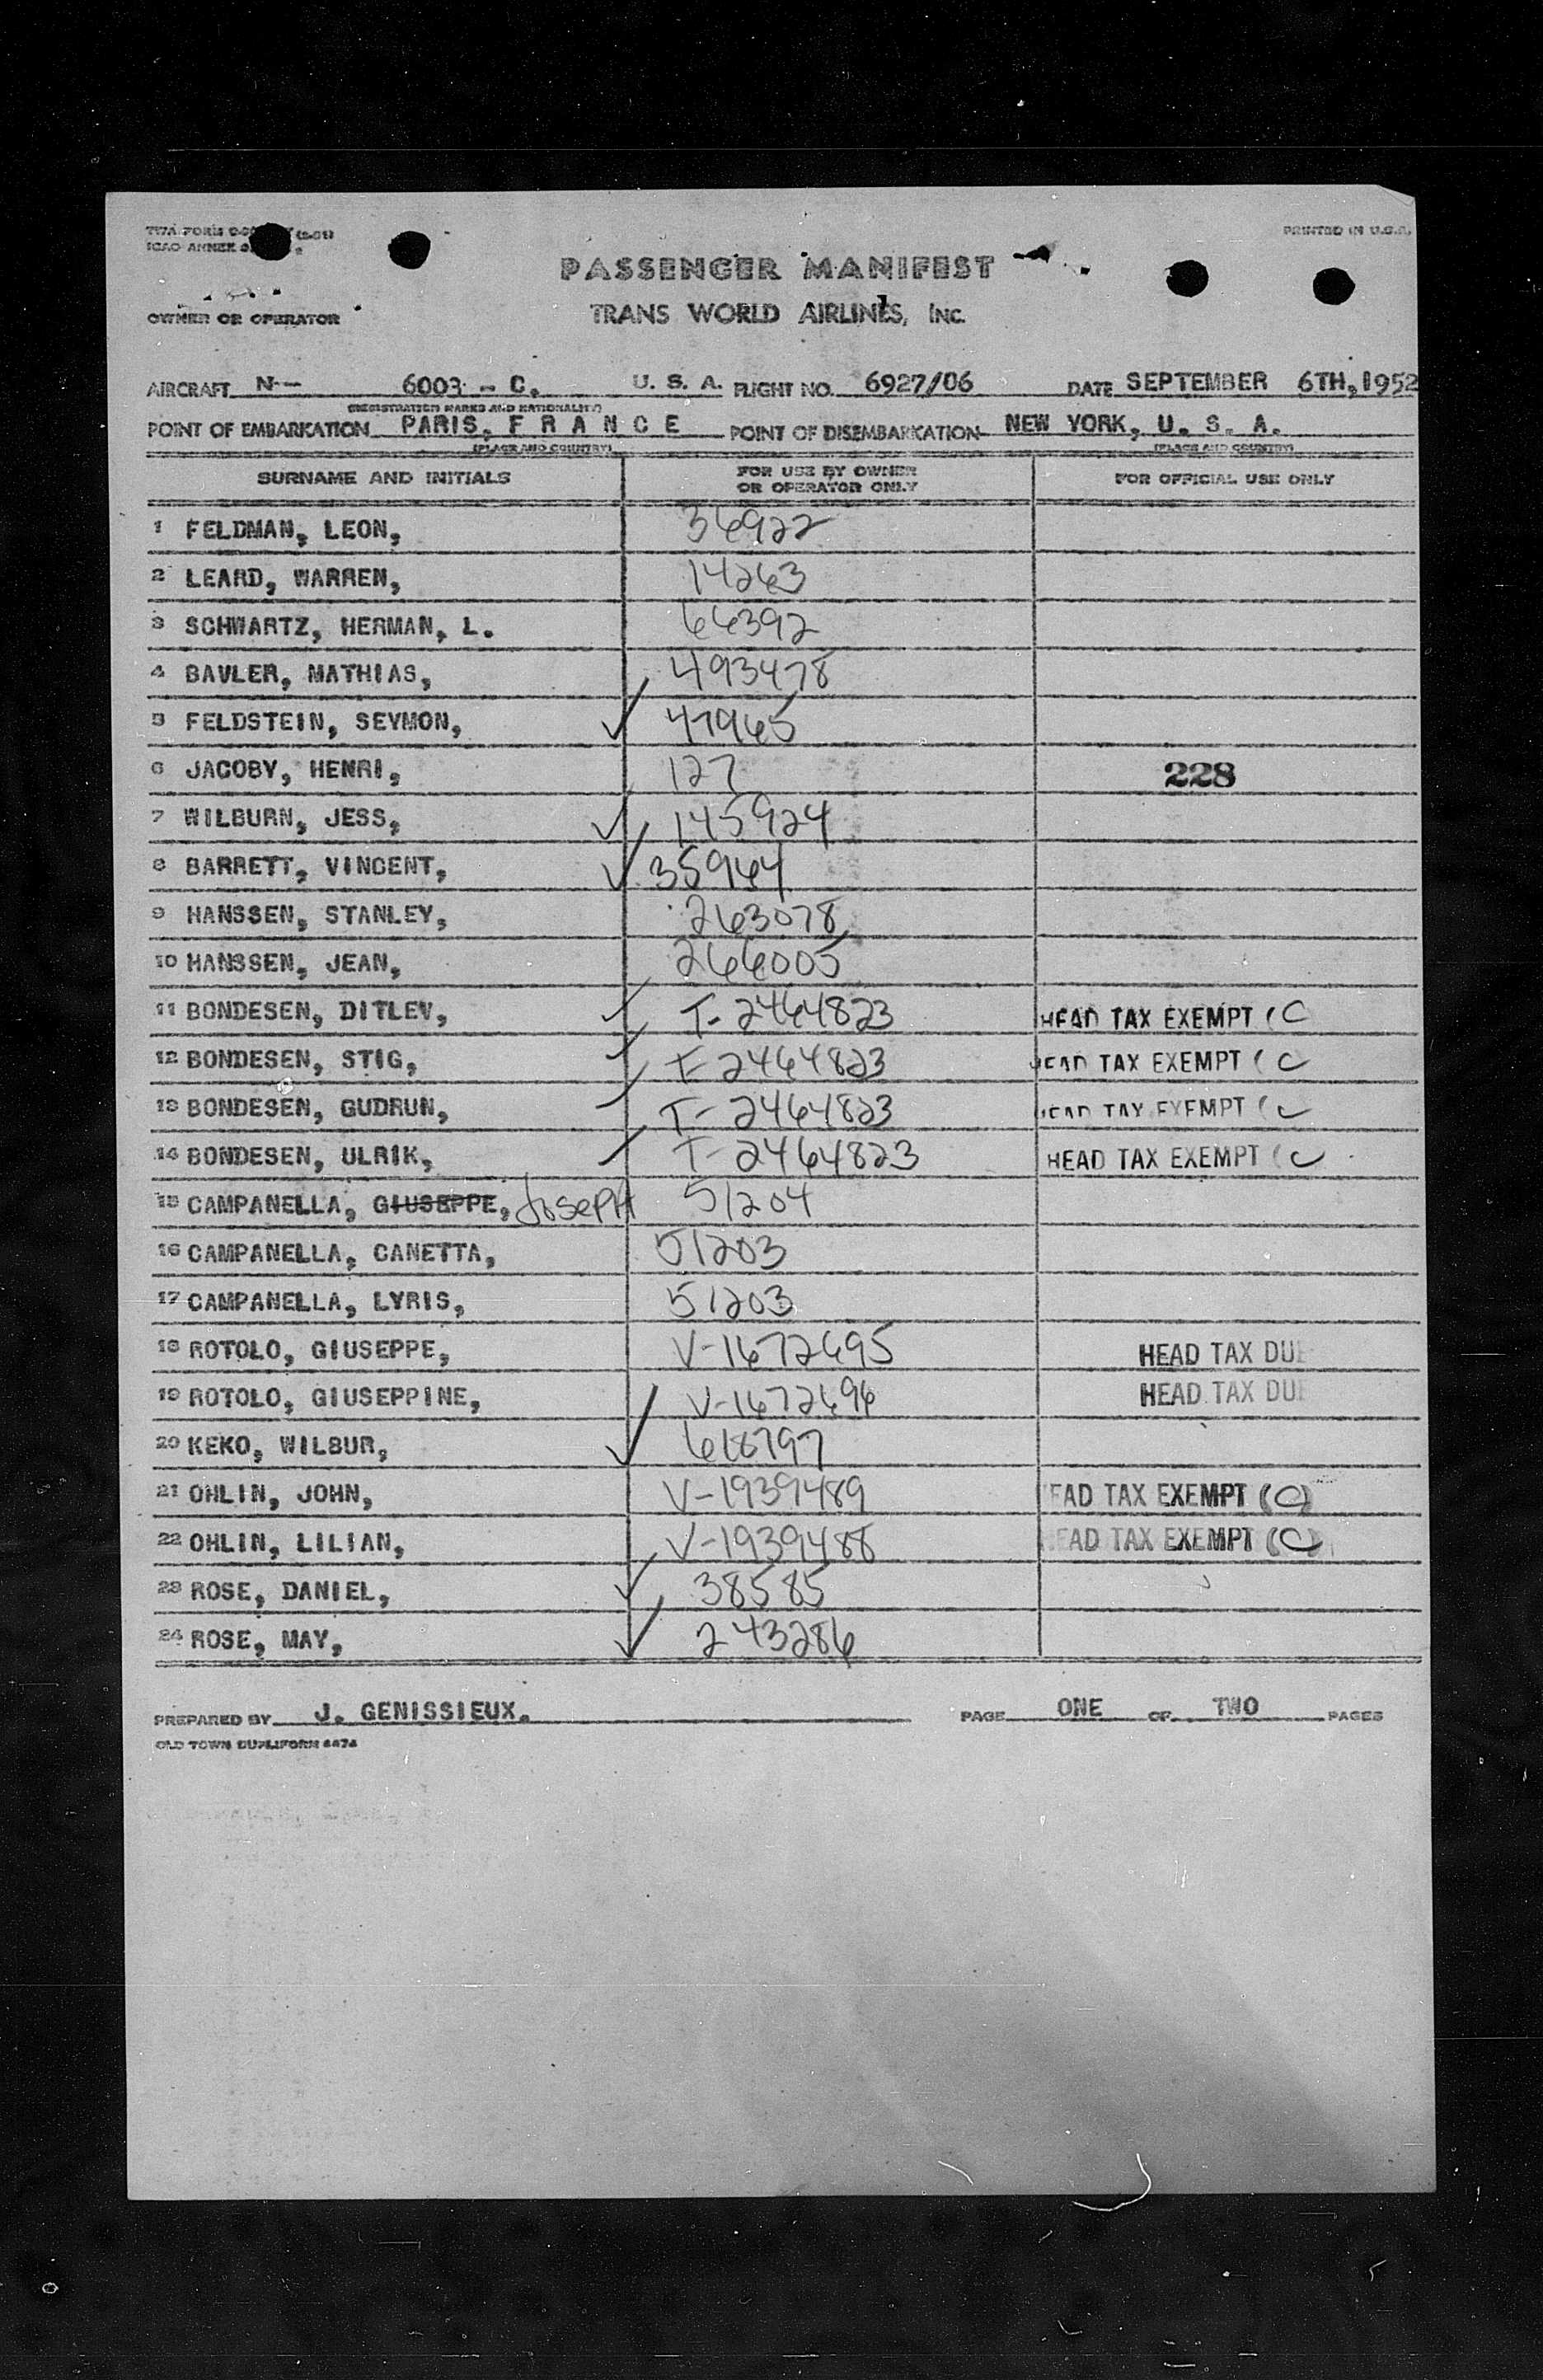 OWNER OR OPERATOR
PRINTED IN U.S.A.
PASSENGER MANIFEST
TRANS WORLD AIRLINES, INC.
AIRCRAFT N-- 6003 - C. U. S. A. FLIGHT NO. 6927/06 DATE SEPTEMBER 6TH, 1952
(REGISTRATION MARKS AND NATIONALITY)
POINT OF EMBARKATION PARIS, F R A N C E POINT OF DISEMBARKATION NEW YORK, U. S. A.
(PLACE AND COUNTRY) (PLACE AND COUNTRY)
SURNAME AND INITIALS FOR USE BY OWNER OR OPERATOR ONLY FOR OFFICIAL USE ONLY
1 FELDMAN, LEON, 36922
2 LEARD, WARREN, 14263
3 SCHWARTZ, HERMAN, L. 66392
4 BAVLER, MATHIAS, 493478
5 FELDSTEIN, SEYMON, ✓ 47965
6 JACOBY, HENRI, 127 228
7 WILBURN, JESS, ✓ 145924
8 BARRETT, VINCENT, ✓ 35964
9 HANSSEN, STANLEY, 263078
10 HANSSEN, JEAN, 266005
11 BONDESEN, DITLEV, ✓ T-2464823 HEAD TAX EXEMPT (C
12 BONDESEN, STIG, ✓ T-2464823 HEAD TAX EXEMPT (C
13 BONDESEN, GUDRUN, ✓ T-2464823 HEAD TAX EXEMPT (C
14 BONDESEN, ULRIK, ✓ T-2464823 HEAD TAX EXEMPT (C
15 CAMPANELLA, GIUSEPPE, JOSEPH 51204
16 CAMPANELLA, CANETTA, 51203
17 CAMPANELLA, LYRIS, 51203
18 ROTOLO, GIUSEPPE, V-1672695 HEAD TAX DUE
19 ROTOLO, GIUSEPPINE, V-1672696 HEAD TAX DUE
20 KEKO, WILBUR, ✓ 618797
21 OHLIN, JOHN, V-1939489 HEAD TAX EXEMPT (C)
22 OHLIN, LILIAN, V-1939488 HEAD TAX EXEMPT (C)
23 ROSE, DANIEL, ✓ 38585
24 ROSE, MAY, ✓ 243286
PREPARED BY J. GENISSIEUX. PAGE ONE OF TWO PAGES
OLD TOWN DUPLIFORM 6474